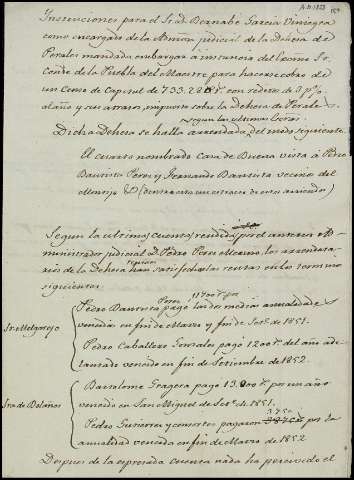 Instrucciones para el Sr. D. Bernabé Garcia Viniegra
como encargado de la Admon judicial de la Dehesa de
Perales mandada embargar á instancia del Excmo Sor.
Conde de la Puebla del Maestre para hacerse cobro de
un Censo de Capital de 733.228 rs. con reditos de 3 p%
al año y sus atrasos, impuesto sobre la Dehesa de Perales
segun las ultimas
Dicha Dehesa se halla arrendada del modo siguiente
El cuarto nombrado Casa de Buena vista á Pedro
Bautista Perez y Fernando Bautista vecino del
&
Segun la ultima cuenta rendida por el anterior Ad-
ministrador judicial D. Pedro Perez Merino, los arrendata-
rios de la Dehesa han satisfecho las rentas en los terminos
siguientes
Sr. Melgarejo
Pedro Bautista Perez pagó las dos medias anualidades
vencidas en fin de Marzo y fin de Set.e de 1851.
Pedro Caballero Gonzalez pagó 1200 rs. del año ade-
lantado vencido en fin de Setiembre de 1852.
Sra de Bolaños
Bartolome Gragera pagó 13.000 rs. por un año
vencido en San Miguel de Set.e de 1851.
3.750
Pedro Gutierrez y consortes pagaron por la
anualidad vencida en fin de Marzo de 1852
Despues de la espresada cuenta nada ha percivido el